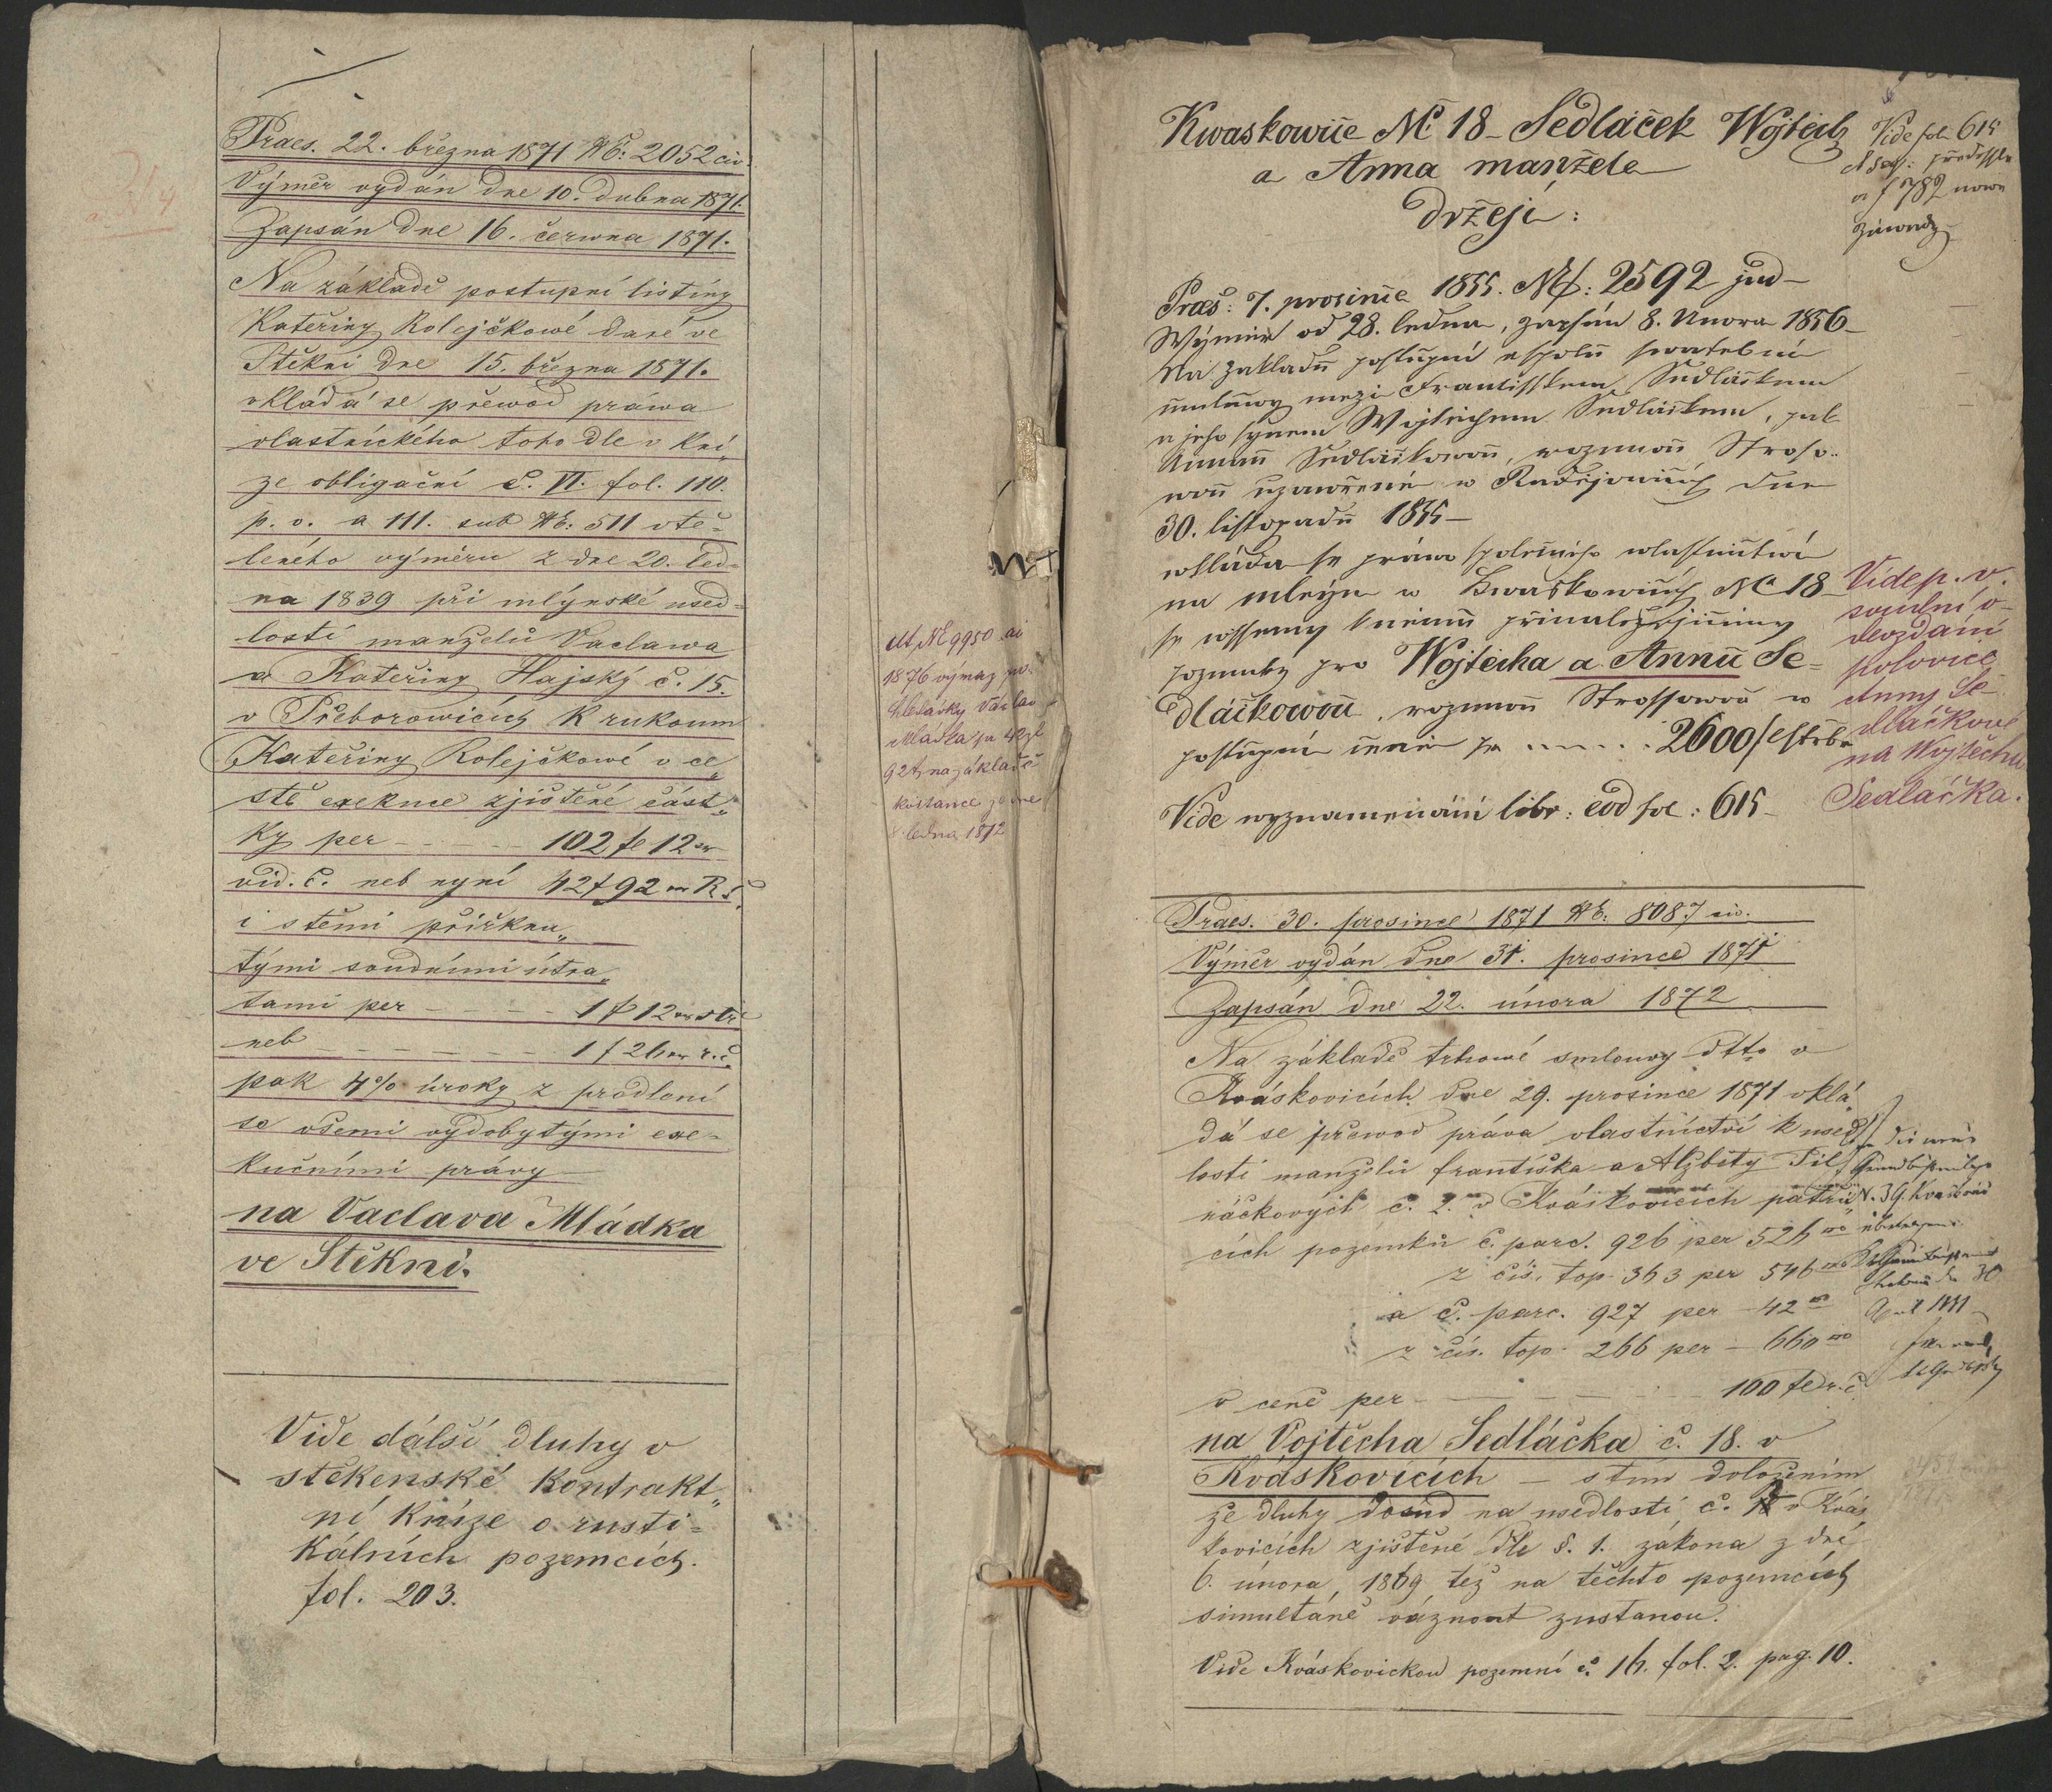 Praes. 22. března 1871 NE: 2052 civ.
Výměr vydán dne 10. dubna 1871.
Zapsán dne 16. června 1871.
Na základě postupní listiny
Kateřiny Rolejčkowé dané ve
Štěkni dne 15. března 1871.
vkládá se přewod práwa
vlastnického toho dle v Kni„
ze obligační č. VI. fol. 110.
p. v. a 111. sub NE: 511 vtě-
leného výměru z dne 20. led-
na 1839 při mlýnské used-
losti manželů Vaclawa
a Kateřiny Hajský č. 15.
v Přeborowicích K rukoum
Kateřiny Rolejčkowé v ce„
stě exekuce zjištěné část„
ky per - - - - 102 fl 12 xr
vid. č. neb nyní 42 f 92 xr R. č.
i s těmi přiřknu„
tými soudními útra„
tami per - - - - 1 f 12 xr
neb - - - - - - 1 f 26 xr r. č.
pak 4% úroky z prodlení
se všemi vydobytými exe-
kučními právy
na Vaclava Mládka
ve Štěkni.
Vide dálší dluhy v
stěkenské Kontrakt„
ní Knize o rusti=
Kálních pozemcích.
fol. 203.
NE 9950
1876 výmaz po-
hledávky Václav
Mládka per 42 fl
92 x na základě
kvitance
ledna 1872
Kwaskowice NC 18 - Sedláček Wojtěch
a Anna manžele
držejí:
Vide fol 615
a f 782 nowe
Praes: 7. prosince 1855. NE: 2592 jud -
Wýměr od 28. ledna, zapsán 8. Unora 1856 -
Na zakladu postupní a spolu swatebni
smlouwy mezi Frantisskem Sedláčkem
a jeho synem Wojtěchem Sedláčkem, pak
Annau Sedláčkowau, rozenou Stroso-
wou uzawřené w Radějowicích dne
30. listopadu 1855 -
wkláda se práwo společného wlastnictwí
na mlýn w Kwaskowicích NC 18
se wssemy k němu přinaležejicimy
pozemky pro Wojtěcha a Annu Se=
dláčkowou, rozenou Strossowou w
postupní ceně per . . . . . 2600 f
Vide wyznamenání libr: eod fol: 615 -
Vide p. v.
soudní o-
devzdání
polovice
Anny Se-
dláčkové
na Wojtěcha
Sedláčka.
Praes. 30. prosince 1871 NE: 8087 civ.
Výměr vydán dne 31. prosince 1871
Zapsán dne 22. února 1872
Na základě trhowé smlouvy dtto v
Kváskovicích dne 29. prosince 1871 vklá„
dá se přewod práva vlastnictví k used„
losti manželů františka a Alžběty Pil„
náčkových č. 2. v Kváskovicích patří„
cích pozemků č. parc. 926 per 526
z čís. top. 363 per 546
a č. parc. 927 per - 42
z čís. top. 266 per - 660
v ceně per - - - - - 100 fl r. č.
na Vojtěcha Sedláčka č. 18. v
Kváskovicích - s tím doložením
že dluhy dosud na usedlosti č. 2 v Kvás„
kovicích zjištěné dle §. 1. zákona z dne
6. února 1869 též na těchto pozemcích
simultáně váznout zustanou.
Vide Kváskovickou pozemní č. 16. fol. 2. pag. 10.